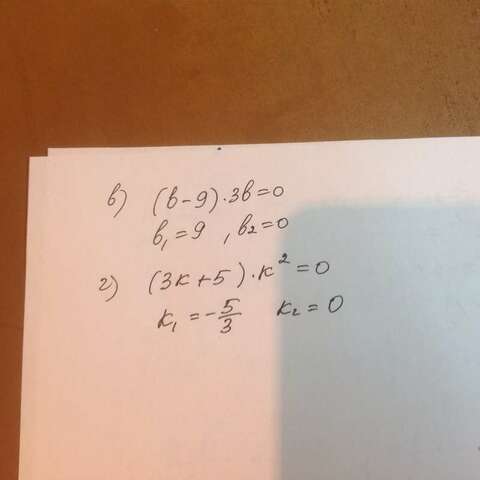 в) (в-9)·3в=0
в₁=9 , в₂=0
г) (3к+5)·к²=0
к₁=-5/3 к₂=0